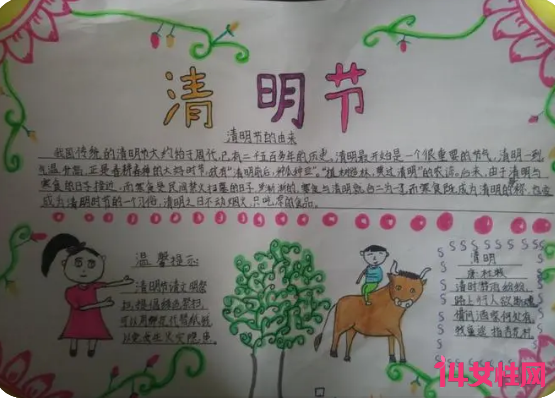 清明节
清明节的由来
我国传统的清明节大约始于周代,已有二千五百多年的历史。清明最开始是一个很重要的节气,清明一到,
气温升高,正是春耕春种的大好时节,故有"清明前后,种瓜种豆"。"植树造林,莫过清明"的农谚。后来,由于清明与
寒食的日子接近,而寒食是民间禁火扫墓的日子,渐渐的,寒食与清明就合二为一了,而寒食既成为清明的别称,也变
成为清明时节的一个习俗,清明之日不动烟火,只吃凉的食品。
温馨提示
清明节请文明祭
扫,提倡绿色祭扫,
可以用鲜花代替纸钱
以免发生火灾隐患
清明
唐 杜牧
清时节雨纷纷,
路上行人欲断魂
借问酒家何处有
牧童遥指杏花村
14女性网